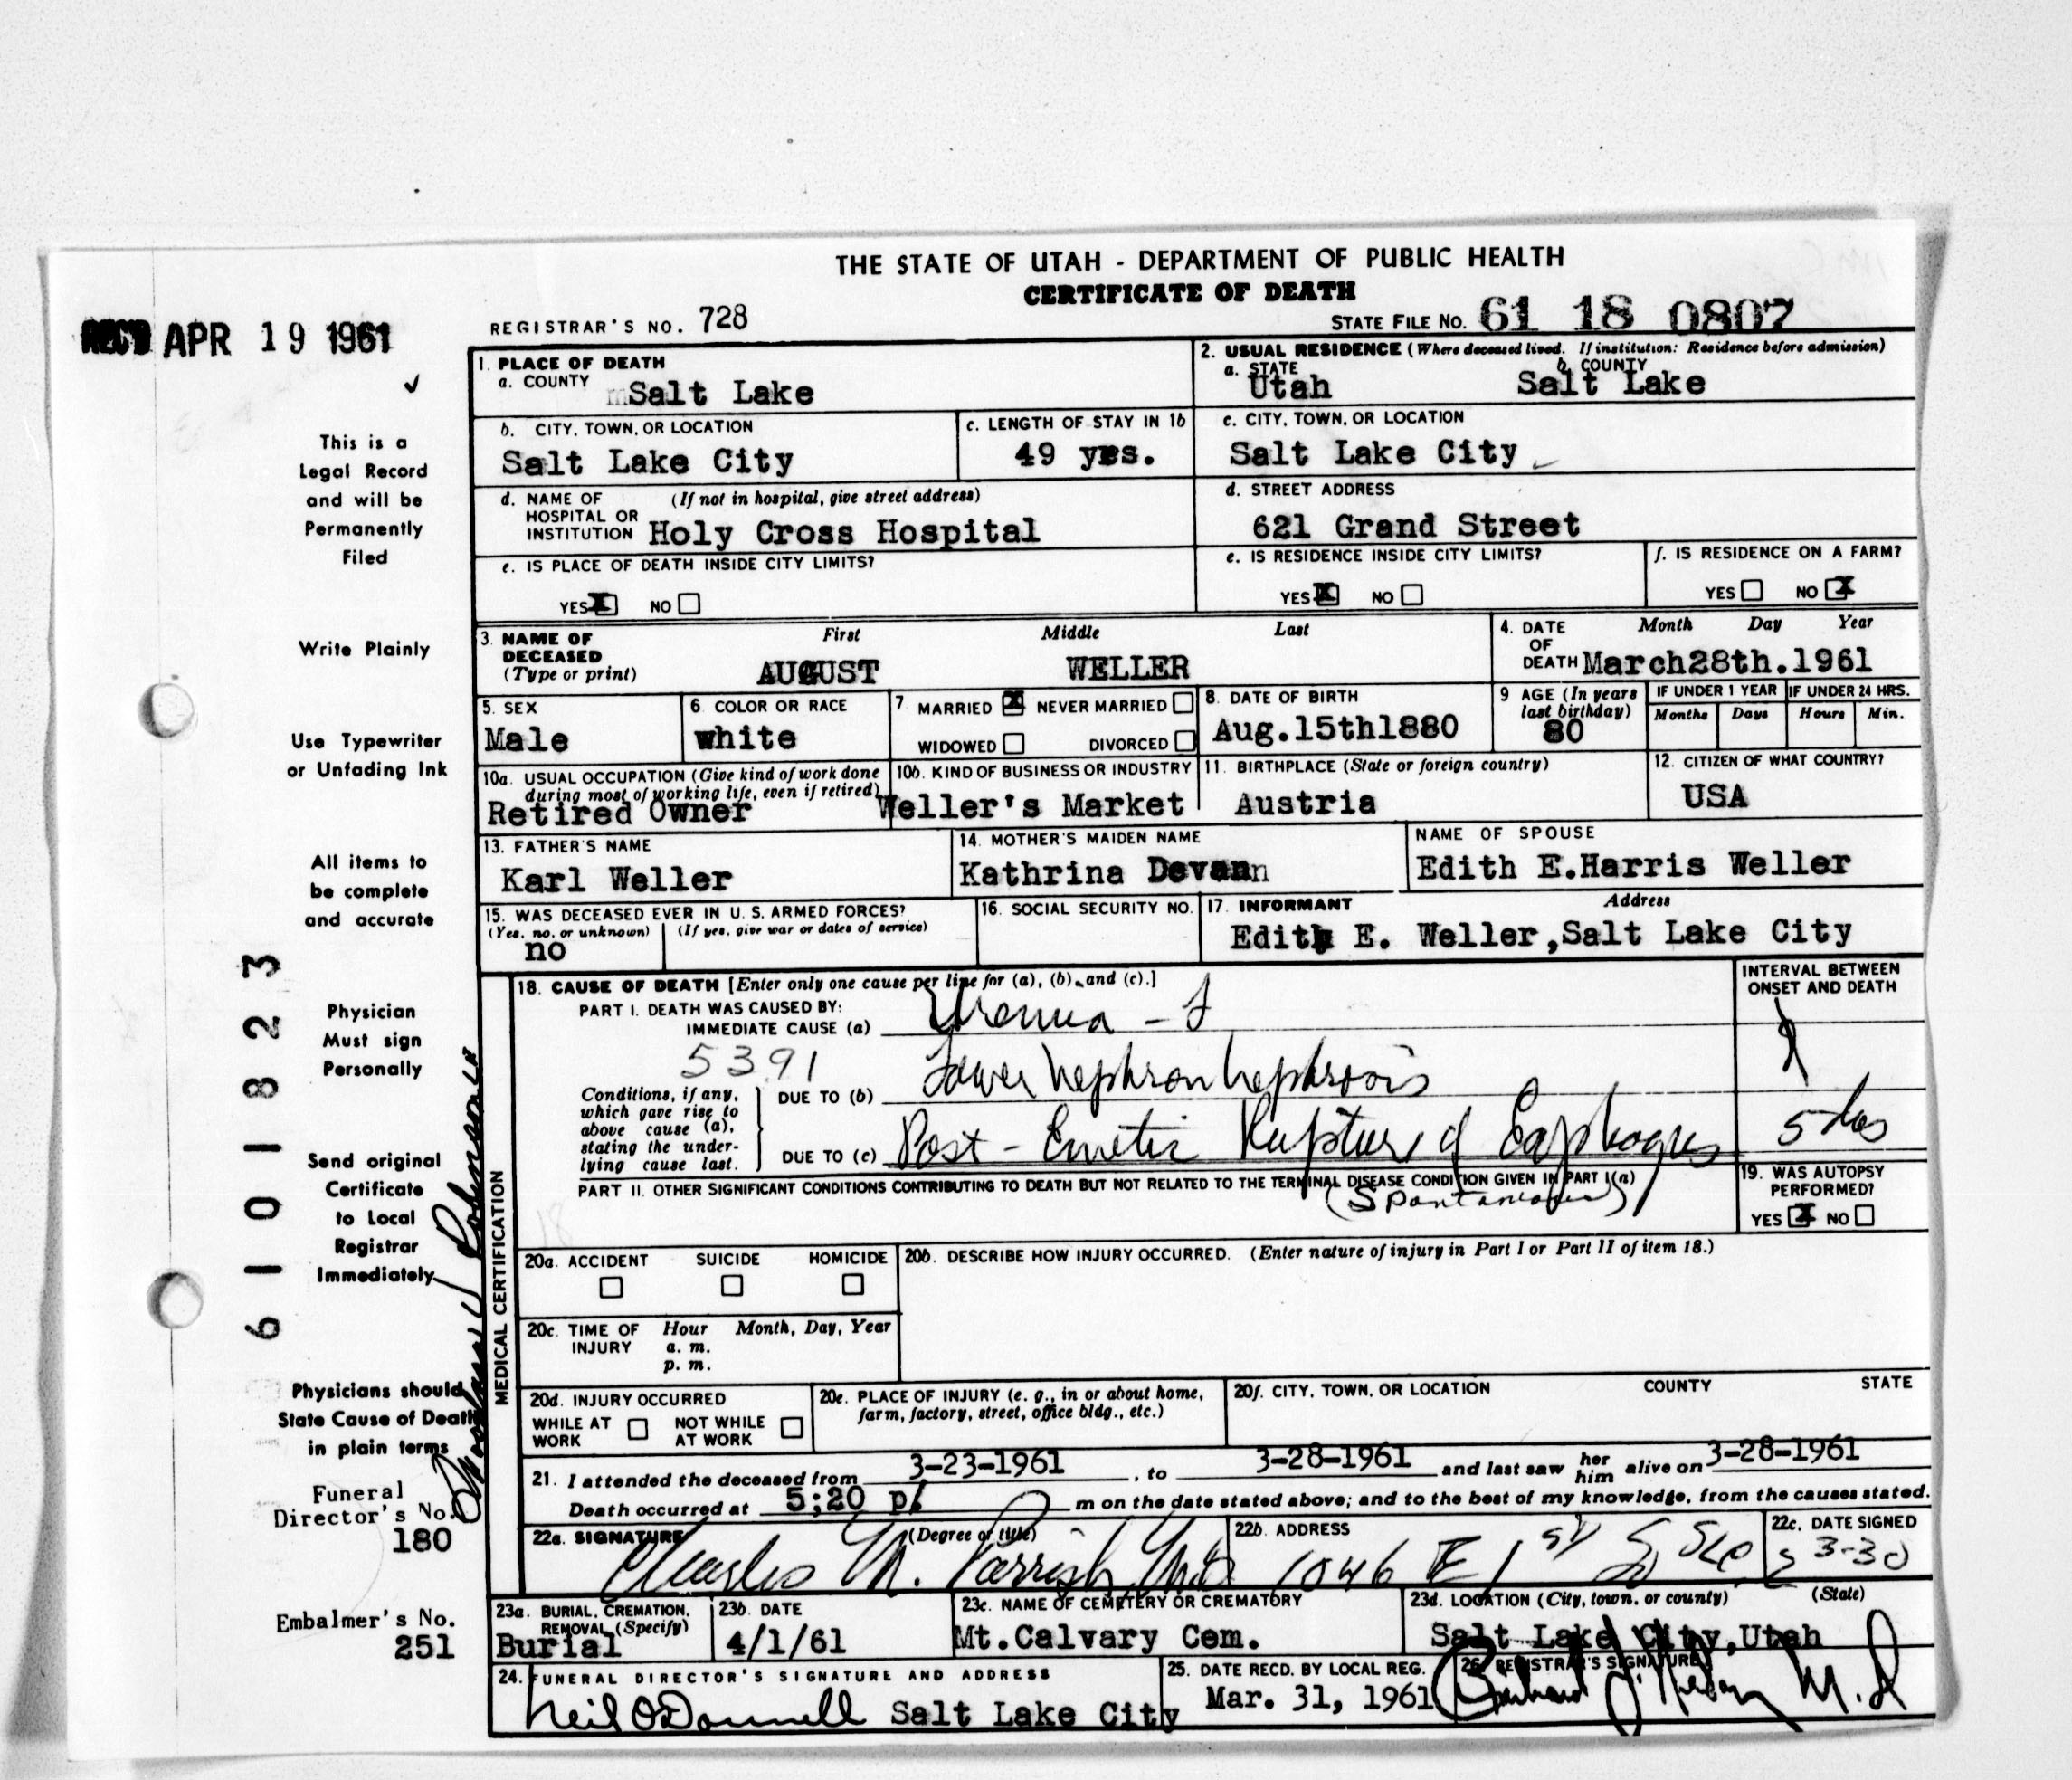 THE STATE OF UTAH - DEPARTMENT OF PUBLIC HEALTH
CERTIFICATE OF DEATH
REC'D APR 19 1961
REGISTRAR'S NO. 728
STATE FILE NO. 61 18 0807
1. PLACE OF DEATH
a. COUNTY Salt Lake
2. USUAL RESIDENCE (Where deceased lived. If institution: Residence before admission)
a. STATE Utah b. COUNTY Salt Lake
b. CITY, TOWN, OR LOCATION Salt Lake City
c. LENGTH OF STAY IN 1b 49 yrs.
c. CITY, TOWN, OR LOCATION Salt Lake City
d. NAME OF HOSPITAL OR INSTITUTION (If not in hospital, give street address) Holy Cross Hospital
d. STREET ADDRESS 621 Grand Street
e. IS PLACE OF DEATH INSIDE CITY LIMITS?
YES X NO
e. IS RESIDENCE INSIDE CITY LIMITS?
YES X NO
f. IS RESIDENCE ON A FARM?
YES NO X
3. NAME OF DECEASED (Type or print)
First Middle Last
AUGUST WELLER
4. DATE OF DEATH Month Day Year
March28th.1961
5. SEX Male
6. COLOR OR RACE white
7. MARRIED X NEVER MARRIED
WIDOWED DIVORCED
8. DATE OF BIRTH Aug.15th1880
9 AGE (In years last birthday) 80
IF UNDER 1 YEAR Months Days
IF UNDER 24 HRS. Hours Min.
10a. USUAL OCCUPATION (Give kind of work done during most of working life, even if retired)
Retired Owner
10b. KIND OF BUSINESS OR INDUSTRY
Weller's Market
11. BIRTHPLACE (State or foreign country)
Austria
12. CITIZEN OF WHAT COUNTRY?
USA
13. FATHER'S NAME
Karl Weller
14. MOTHER'S MAIDEN NAME
Kathrina Devann
NAME OF SPOUSE
Edith E.Harris Weller
15. WAS DECEASED EVER IN U. S. ARMED FORCES?
(Yes, no, or unknown) (If yes, give war or dates of service)
no
16. SOCIAL SECURITY NO.
17. INFORMANT Address
Edith E. Weller,Salt Lake City
MEDICAL CERTIFICATION
18. CAUSE OF DEATH [Enter only one cause per line for (a), (b), and (c).]
INTERVAL BETWEEN ONSET AND DEATH
PART I. DEATH WAS CAUSED BY:
IMMEDIATE CAUSE (a) Uremia
5391
Conditions, if any, which gave rise to above cause (a), stating the underlying cause last.
DUE TO (b) Lower nephron nephrosis
DUE TO (c) Post-Emetic Rupture of Esophagus
(Spontaneous)
PART II. OTHER SIGNIFICANT CONDITIONS CONTRIBUTING TO DEATH BUT NOT RELATED TO THE TERMINAL DISEASE CONDITION GIVEN IN PART I(a)
19. WAS AUTOPSY PERFORMED?
YES X NO
20a. ACCIDENT SUICIDE HOMICIDE
20b. DESCRIBE HOW INJURY OCCURRED. (Enter nature of injury in Part I or Part II of item 18.)
20c. TIME OF INJURY Hour Month, Day, Year
a. m.
p. m.
20d. INJURY OCCURRED
WHILE AT WORK NOT WHILE AT WORK
20e. PLACE OF INJURY (e. g., in or about home, farm, factory, street, office bldg., etc.)
20f. CITY, TOWN, OR LOCATION COUNTY STATE
21. I attended the deceased from 3-23-1961, to 3-28-1961 and last saw her him alive on 3-28-1961
Death occurred at 5;20 p. m on the date stated above; and to the best of my knowledge, from the causes stated.
22a. SIGNATURE (Degree or title)
Charles M. Parrish, M.D.
22b. ADDRESS
1046 E 1st S SLC
22c. DATE SIGNED
3-30
23a. BURIAL, CREMATION, REMOVAL (Specify)
Burial
23b. DATE
4/1/61
23c. NAME OF CEMETERY OR CREMATORY
Mt.Calvary Cem.
23d. LOCATION (City, town, or county) (State)
Salt Lake City,Utah
24. FUNERAL DIRECTOR'S SIGNATURE AND ADDRESS
Neil O'Donnell Salt Lake City
25. DATE RECD. BY LOCAL REG.
Mar. 31, 1961
26. REGISTRAR'S SIGNATURE
M.D
This is a
Legal Record
and will be
Permanently
Filed
Write Plainly
Use Typewriter
or Unfading Ink
All items to
be complete
and accurate
Physician
Must sign
Personally
Send original
Certificate
to Local
Registrar
Immediately
Physicians should
State Cause of Death
in plain terms
Funeral
Director's No.
180
Embalmer's No.
251
6101823